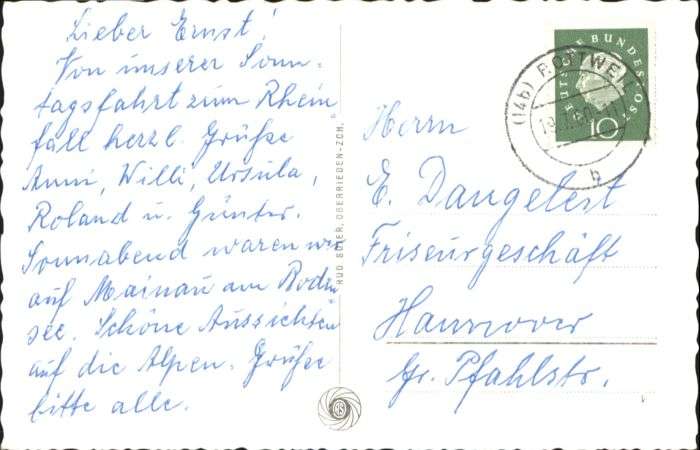 Lieber Ernst!
Von unserer Sonn-
tagsfahrt zum Rhein
fall herzl. Grüße
Anni, Willi, Ursula,
Roland u. Günter.
Sonnabend waren wir
auf Mainau am Boden
see. Schöne Aussichten
auf die Alpen. Grüße
bitte alle.
RUD SUTER, OBERRIEDEN-ZCH.
DEUTSCHE BUNDESPOST
10
(14b) ROTTWEIL
b
Herrn
E. Dangelest
Friseurgeschäft
Hannover
Gr. Pfahlstr.